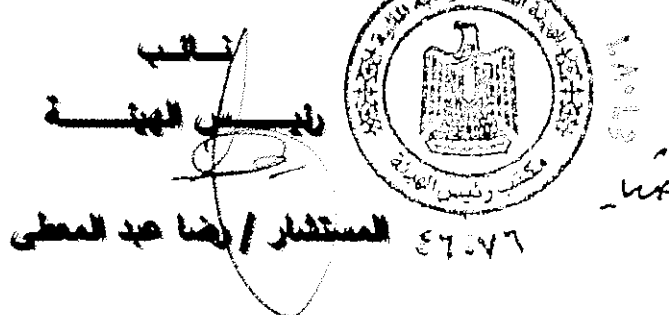 نائب
رئيس الهيئة
المستشار / رضا عبد المعطى
مكتب رئيس الهيئة
٤٦٠٧٦